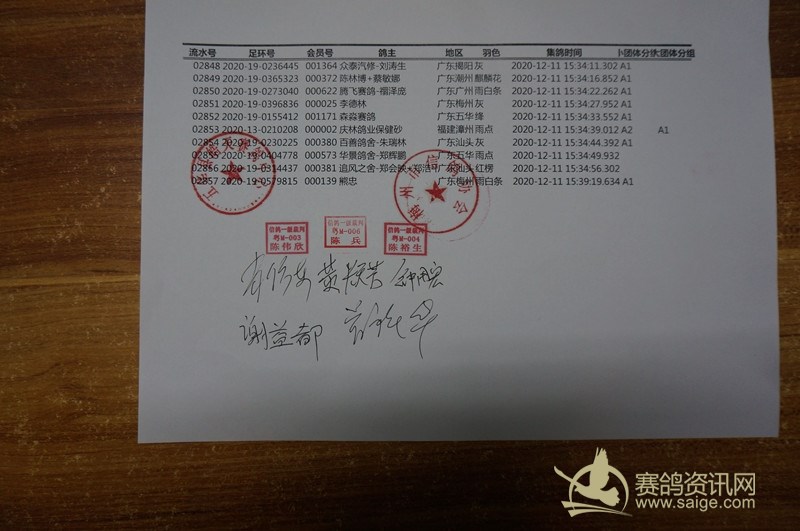 流水号 足环号 会员号 鸽主 地区 羽色 集鸽时间 小团体分组 大团体分组
02848 2020-19-0236445 001364 众泰汽修-刘涛生 广东揭阳 灰 2020-12-11 15:34:11.302 A1
02849 2020-19-0365323 000372 陈林博+蔡敏娜 广东潮州 麒麟花 2020-12-11 15:34:16.852 A1
02850 2020-19-0273040 000622 腾飞赛鸽-禤泽庞 广东广州 雨白条 2020-12-11 15:34:22.262 A1
02851 2020-19-0396836 000025 李德林 广东梅州 灰 2020-12-11 15:34:27.952 A1
02852 2020-19-0155412 001171 森淼赛鸽 广东五华 绛 2020-12-11 15:34:33.552 A1
02853 2020-13-0210208 000002 庆林鸽业保健砂 福建漳州 雨点 2020-12-11 15:34:39.012 A2 A1
02854 2020-19-0230225 000380 百善鸽舍-朱瑞林 广东汕头 灰 2020-12-11 15:34:44.392 A1
02855 000573 华景鸽舍-郑辉鹏 广东五华 雨点 2020-12-11 15:34:49.932
02856 000381 追风之舍-郑会映+郑浩 广东汕头 红楞 2020-12-11 15:34:56.302
02857 2020-19-0579815 000139 熊忠 广东梅州 雨白条 2020-12-11 15:39:19.634 A1
梅州市信鸽协会
信鸽一级裁判 信鸽一级裁判 信鸽一级裁判
粤M-003 粤M-006 粤M-004
陈伟欣 陈兵 陈裕生
谢益都
赛鸽资讯网
www.saige.com